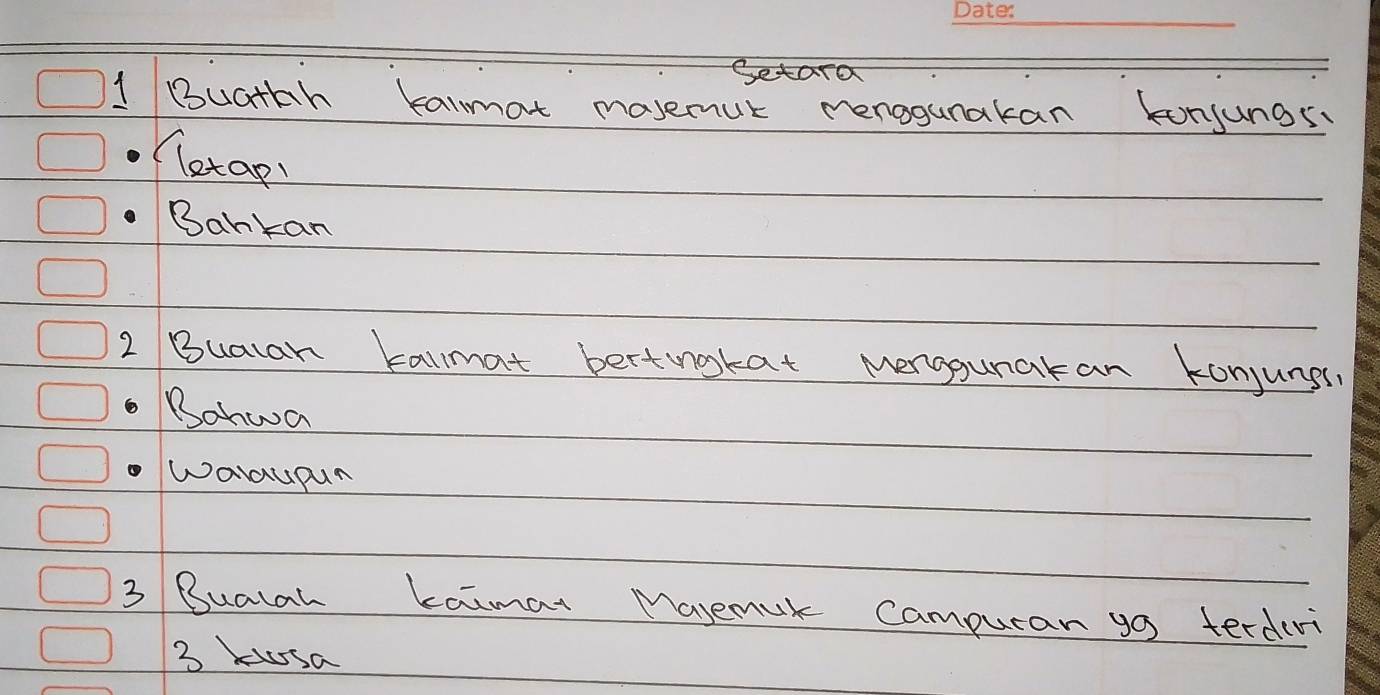 Date:
Setara
1 Buatlah kalimat majemuk menggunakan konjungsi
• Tetapi
• Bahkan
2 Bualah kalimat bertingkat menggunakan konjungsi
• Bahwa
• Walaupun
3 Bualah kaimat Majemuk Campuran yg terdiri
3 klusa